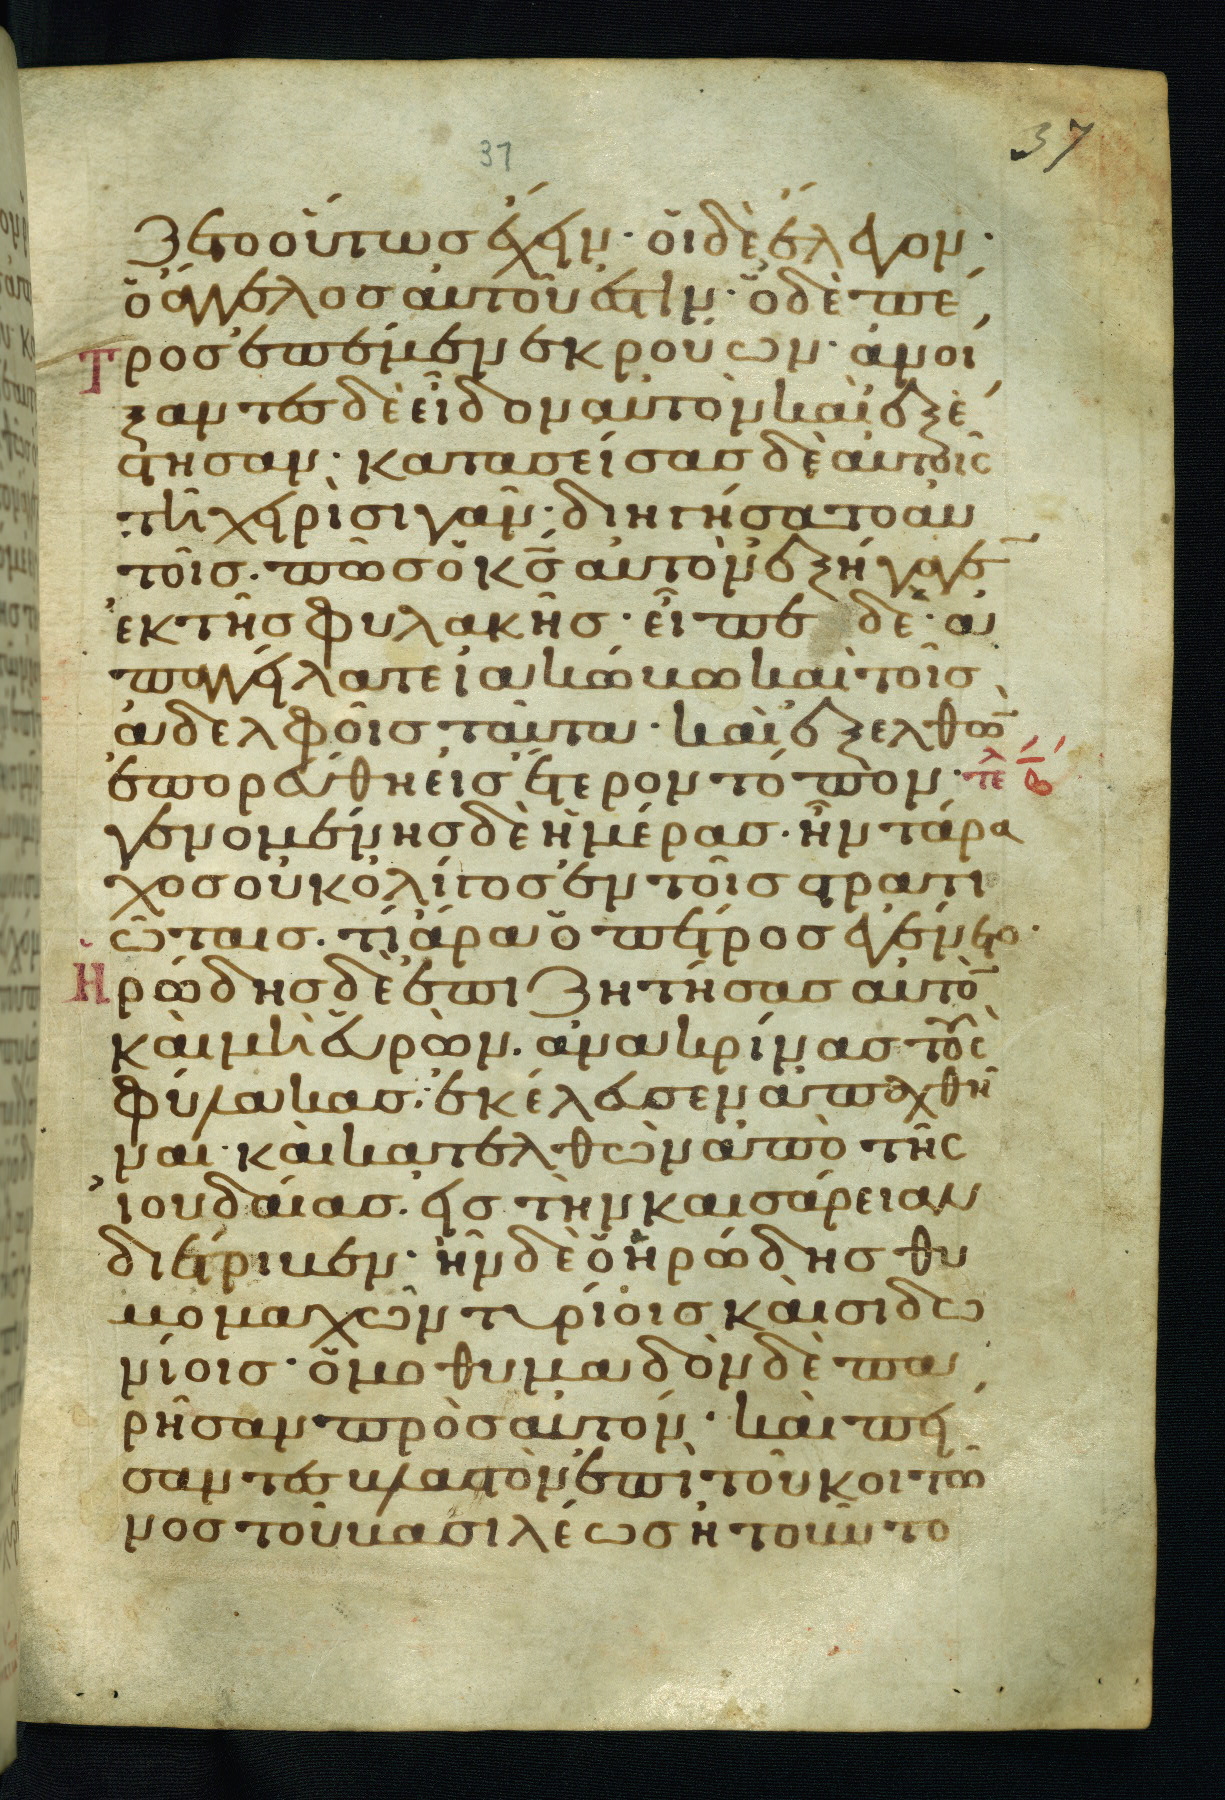 37
37
ζετο οὕτως ἔχειν· οἱ δὲ ἔλεγον·
ὁ ἄγγελος αὐτοῦ ἐστὶν· ὁ δὲ πέ
τρος ἐπέμενεν κρούων· ἀνοί
ξαντες δὲ εἶδον αὐτὸν καὶ ἐξέ
στησαν· κατασείσας δὲ αὐτοῖς
τῆ χειρὶ σιγᾶν· διηγήσατο αυ
τοῖς. πῶς ὁ κ̅ς̅ αὐτὸν ἐξήγαγε̅
ἐκ τῆς φυλακῆς· εἶπε δὲ· ἀ
παγγείλατε ἰακώβω καὶ τοῖς
ἀδελφοῖς ταῦτα· καὶ ἐξελθὼ̅
ἐπορεύθη εἰς ἕτερον τόπον· τε^λ β
γενομένης δὲ ἡμέρας. ἦν τάρα
χος οὐκ ὀλίγος ἐν τοῖς στρατι
ώταις. τί ἄρα ὁ πέτρος ἐγένετο·
Ἡρώδης δὲ ἐπιζητήσας αὐτὸ̅
καὶ μὴ εὑρὼν. ἀνακρίνας τοὺς
φύλακας· ἐκέλευσεν ἀπαχθῆ
ναι· καὶ κατελθὼν ἀπὸ τῆς
ἰουδαίας. εἰς τὴν καισάρειαν
διέτριβεν· ἦν δὲ ὁ ἡρώδης θυ
μομαχῶν τυρίοις καὶ σιδω
νίοις· ὁμοθυμαδὸν δὲ πα
ρῆσαν πρὸς αὐτόν· καὶ πεί
σαντες βλαστὸν ἐπὶ τοῦ κοιτῶ
νος τοῦ βασιλέως ἠτοῦντο